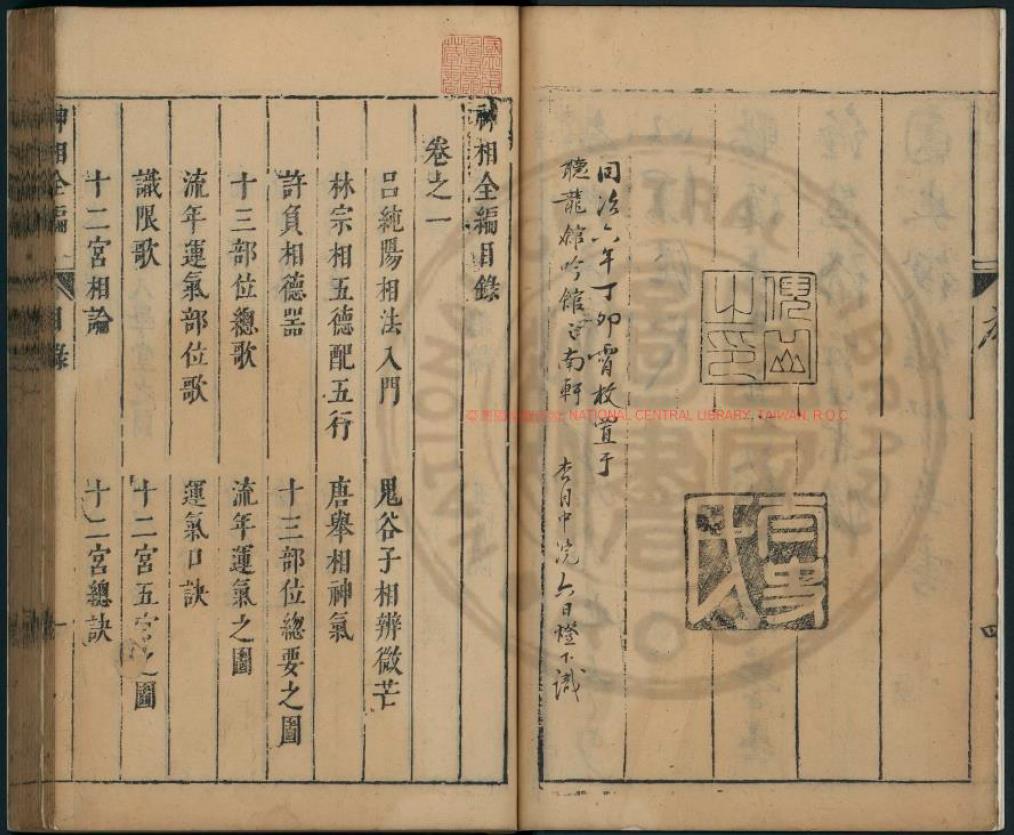 序
四
同治六年丁卯霄枚置于
聽龍館吟館之南軒 杏月中浣六日燈下識
臺灣國家圖書館 NATIONAL CENTRAL LIBRARY, TAIWAN, R.O.C
神相全編目錄
卷之一
呂純陽相法入門 鬼谷子相辨微芒
林宗相五德配五行 唐舉相神氣
許負相德器 十三部位總要之圖
十三部位總歌 流年運氣之圖
流年運氣部位歌 運氣口訣
識限歌 十二宮五官之圖
十二宮相論 十二宮總訣
神相全編 目錄 一